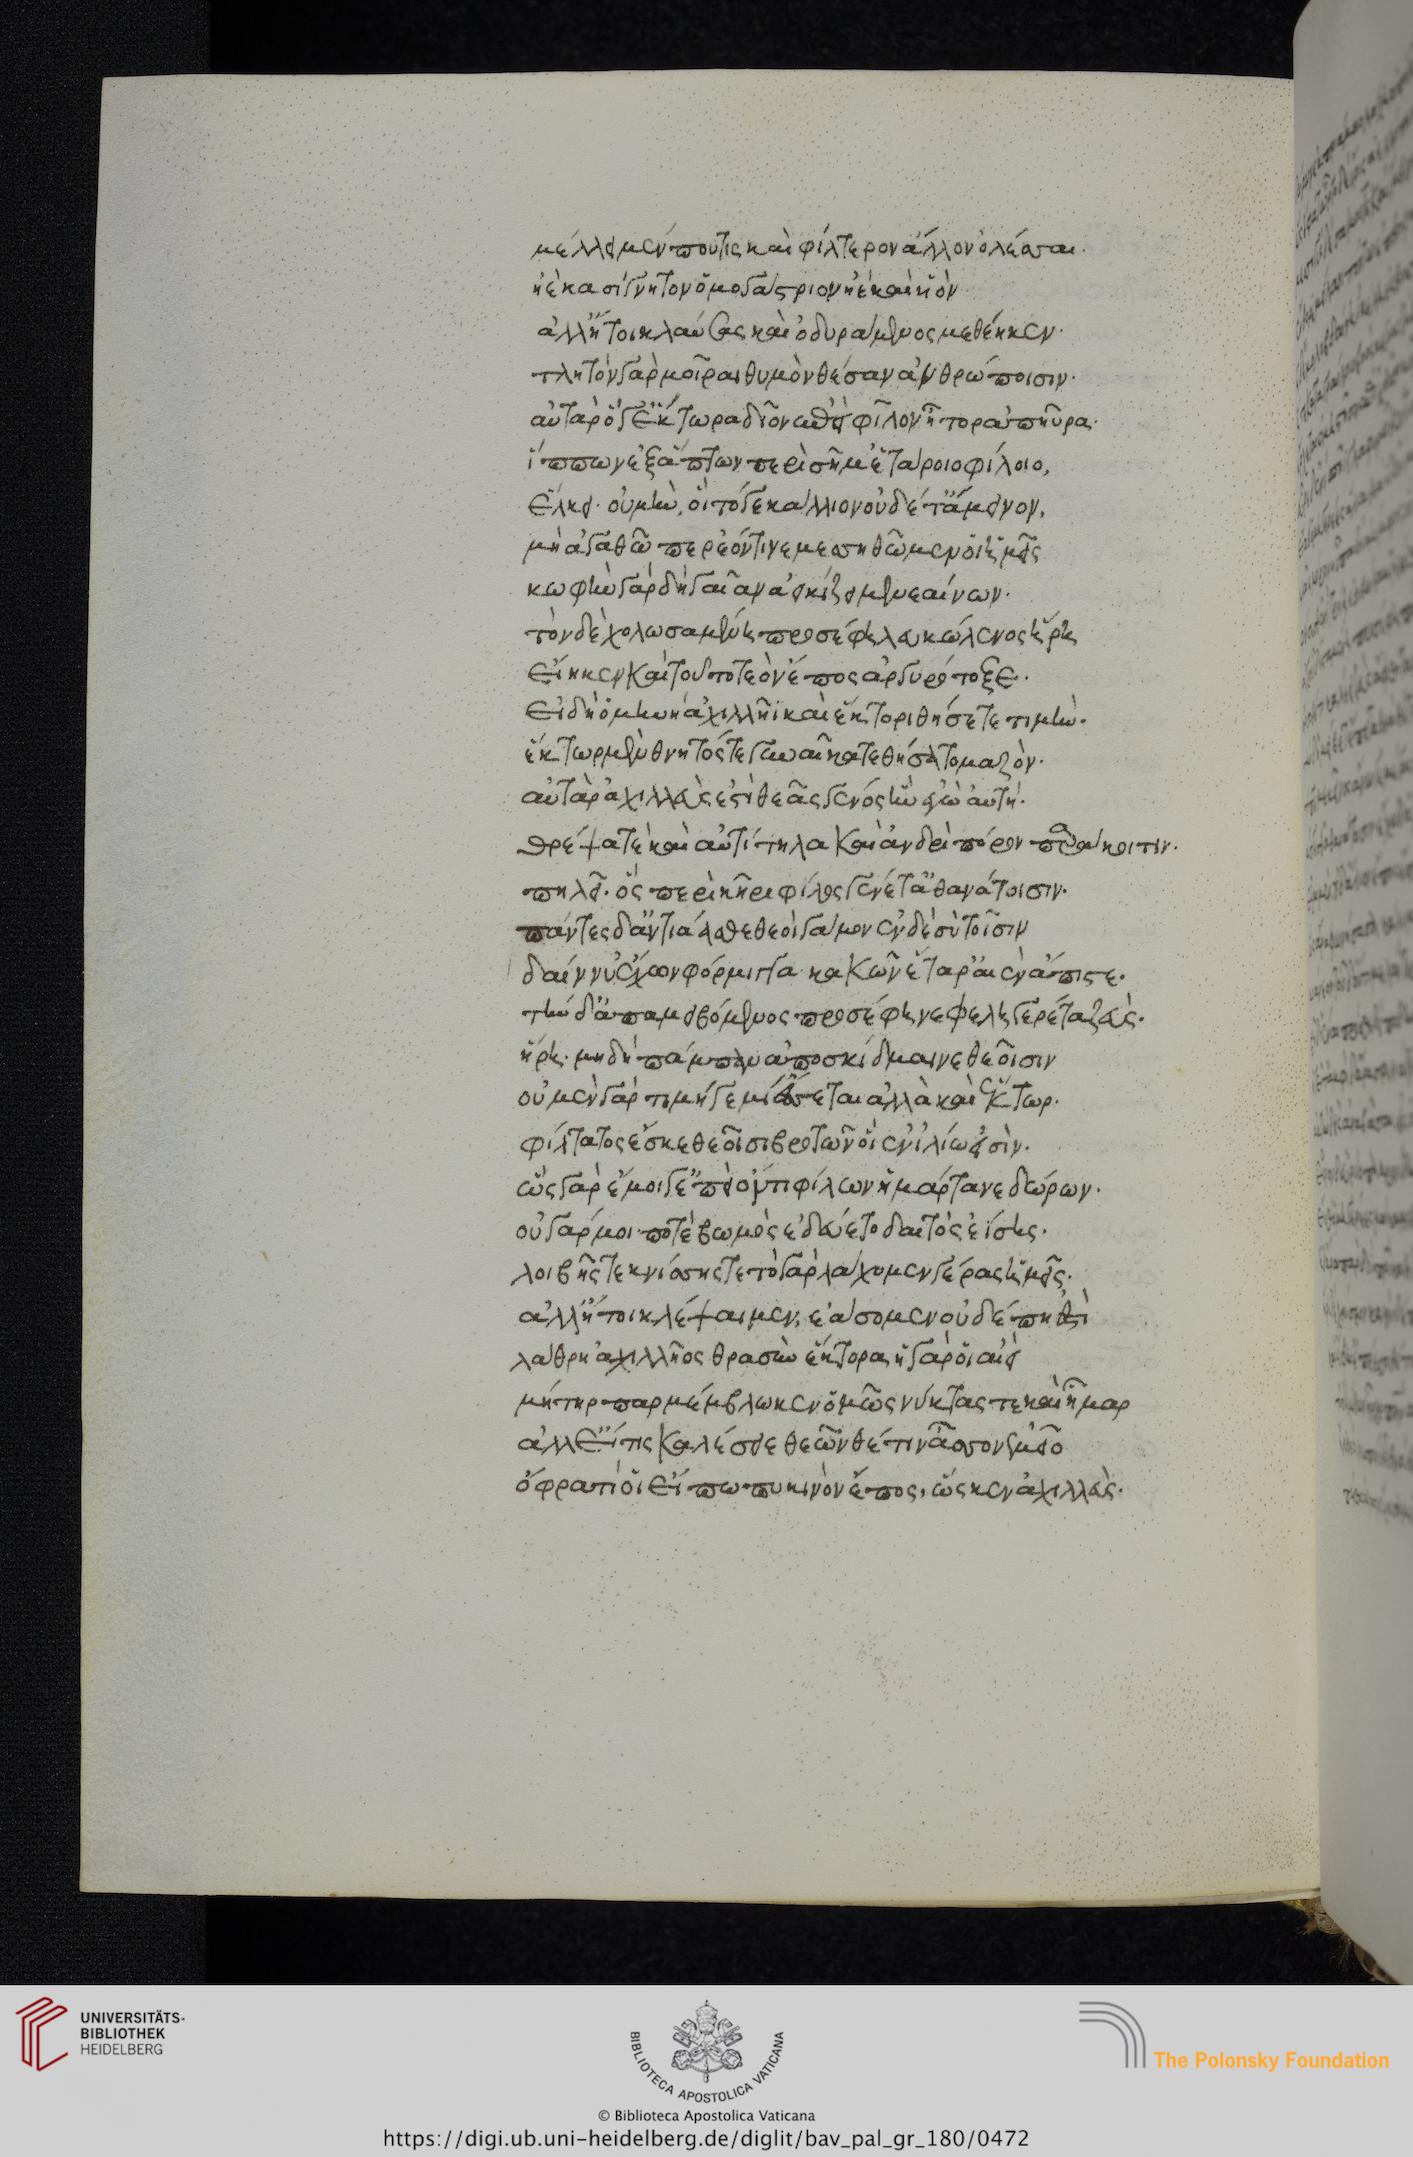 μέλλει μέν πού τις καὶ φίλτερον ἄλλον ὀλέσσαι.
ἠὲ κασίγνητον ὁμογάστριον ἠὲ καὶ υἱὸν
ἀλλ' ἤτοι κλαύσας καὶ ὀδυράμενος μεθέηκεν.
τλητὸν γὰρ μοῖραι θυμὸν θέσαν ἀνθρώποισιν.
αὐτὰρ ὅγ' Ἕκτωρα δῖον ἐπεὶ φίλον ἦτορ ἀπηύρα.
ἵππων ἐξάπτων περὶ σῆμ' ἑτάροιο φίλοιο,
ἕλκει. οὐ μὴν οἱ τόγε κάλλιον οὐδέ τ' ἄμεινον,
μὴ ἀγαθῷ περ ἐόντι νεμεσσηθῶμέν οἱ ἡμεῖς
κωφὴν γὰρ δὴ γαῖαν ἀεικίζει μενεαίνων.
τὸν δὲ χολωσαμένη προσέφη λευκώλενος ἥρη
εἴη κεν καὶ τοῦτο τεὸν ἔπος ἀργυρότοξε.
εἰ δὴ ὁμὴν ἀχιλλῆϊ καὶ ἕκτορι θήσετε τιμὴν.
ἕκτωρ μὲν θνητός τε γυναῖκά τε θήσατο μαζὸν.
αὐτὰρ ἀχιλλεὺς ἐστὶ θεᾶς γένος ἣν ἐγὼ αὐτή.
θρέψά τε καὶ αὐτίτηλα καὶ ἀνδρὶ πόρον παράκοιτιν.
πηλεῖ. ὃς περὶ κῆρι φίλος γένετ' ἀθανάτοισιν.
πάντες δ' ἀντιάασθε θεοὶ γάμου ἐν δὲ σὺ τοῖσιν
δαίνυ' ἔχων φόρμιγγα κακῶν ἕταρ' αἰὲν ἄπιστε.
τὴν δ' ἀπαμειβόμενος προσέφη νεφεληγερέτα ζεὺς.
ἥρη. μὴ δὴ πάμπαν ἀποσκύδμαινε θεοῖσιν
οὐ μὲν γὰρ τιμή γε μί' ἔσσεται ἀλλὰ καὶ ἕκτωρ.
φίλτατος ἔσκε θεοῖσι βροτῶν οἳ ἐν ἰλίῳ εἰσὶν.
ὣς γὰρ ἔμοιγ' ἐπεὶ οὔτι φίλων ἡμάρτανε δώρων.
οὐ γάρ μοι ποτὲ βωμὸς ἐδεύετο δαιτὸς ἐΐσης.
λοιβῆς τε κνίσσης τε τὸ γὰρ λάχομεν γέρας ἡμεῖς.
ἀλλ' ἤτοι κλέψαι μὲν, ἐάσομεν οὐδέ πη ἐστὶ
λάθρη ἀχιλλῆος θρασὺν ἕκτορα, ἦ γάρ οἱ αἰεὶ
μήτηρ παρμέμβλωκεν ὁμῶς νύκτας τε καὶ ἦμαρ
ἀλλ' εἴ τις καλέσειε θεῶν θέτιν ἆσσον ἐμεῖο
ὄφρα τί οἱ εἴπω πυκινὸν ἔπος, ὥς κεν ἀχιλλεὺς.
UNIVERSITÄTS-
BIBLIOTHEK
HEIDELBERG
BIBLIOTECA APOSTOLICA VATICANA
The Polonsky Foundation
© Biblioteca Apostolica Vaticana
https://digi.ub.uni-heidelberg.de/diglit/bav_pal_gr_180/0472